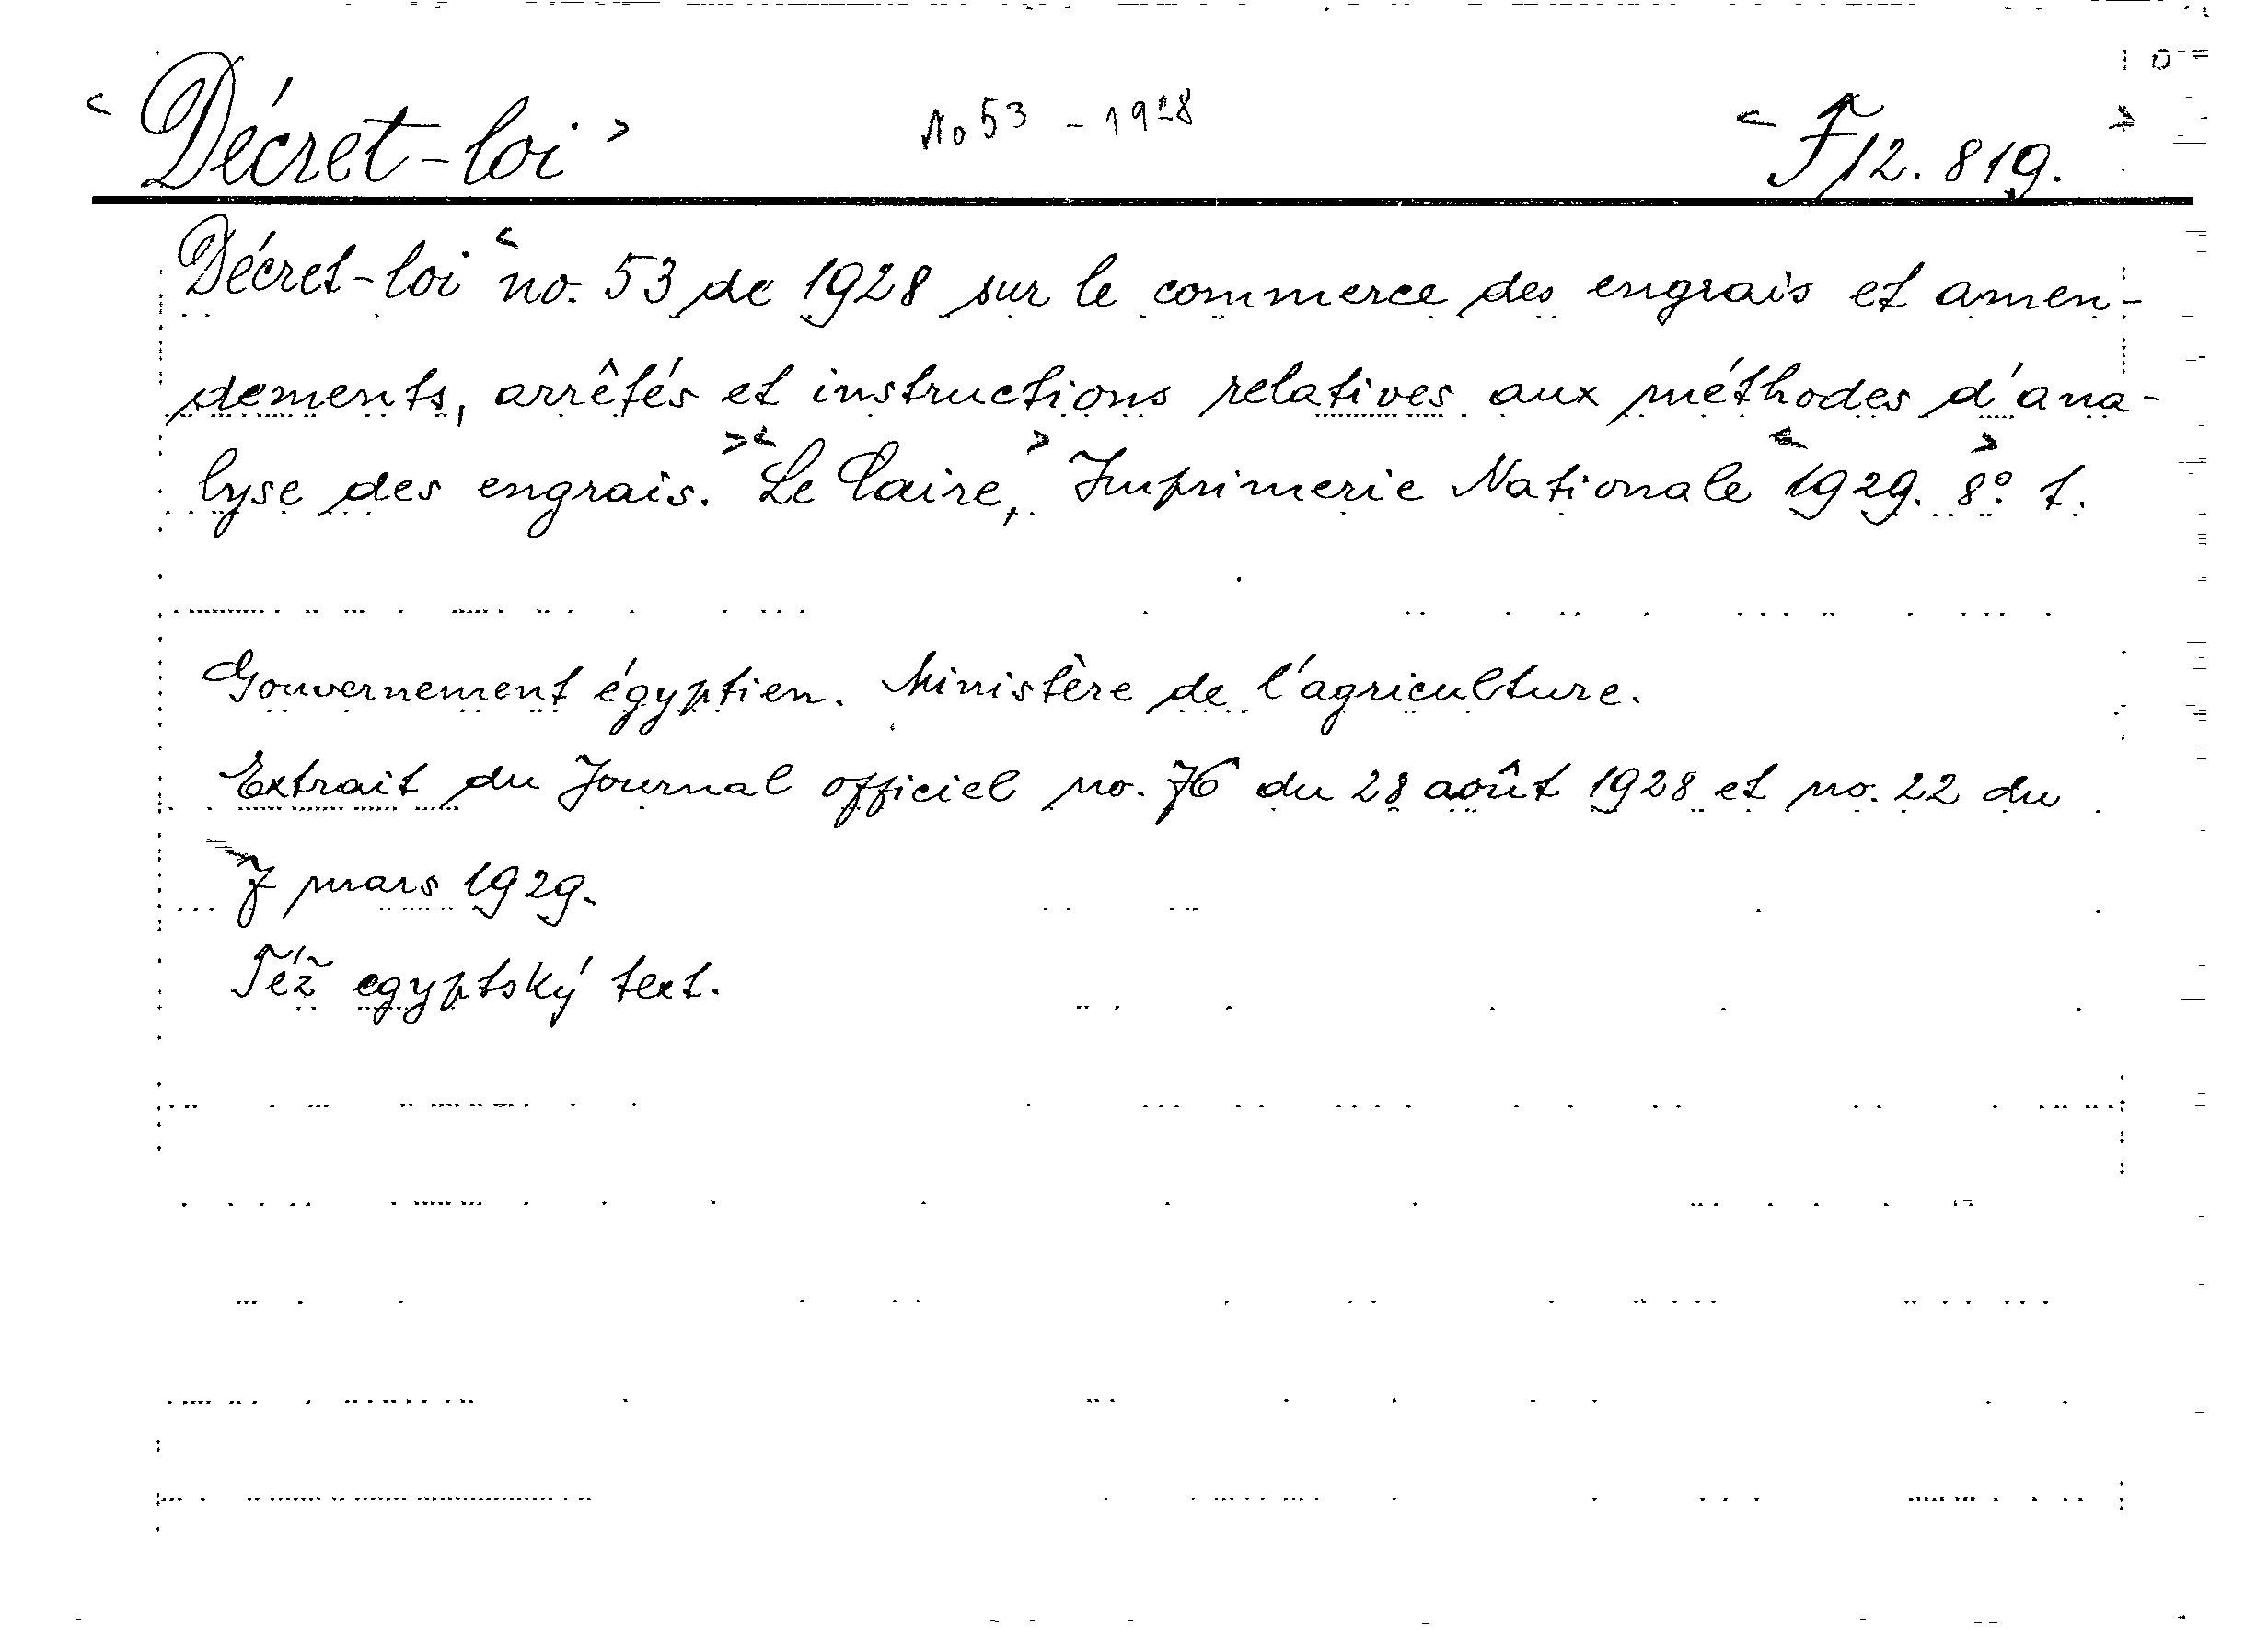 < Décret-loi > No 53 - 1928 < F 12.819. >
Décret-loi < no. 53 de 1928 sur le commerce des engrais et amen-
dements, arrêtés et instructions relatives aux méthodes d'ana-
lyse des engrais. > < Le Caire, > Imprimerie Nationale < 1929. > 8° 1.
Gouvernement égyptien. Ministère de l'agriculture.
Extrait du Journal officiel no. 76 du 28 août 1928 et no. 22 du
7 mars 1929.
Též egyptský text.